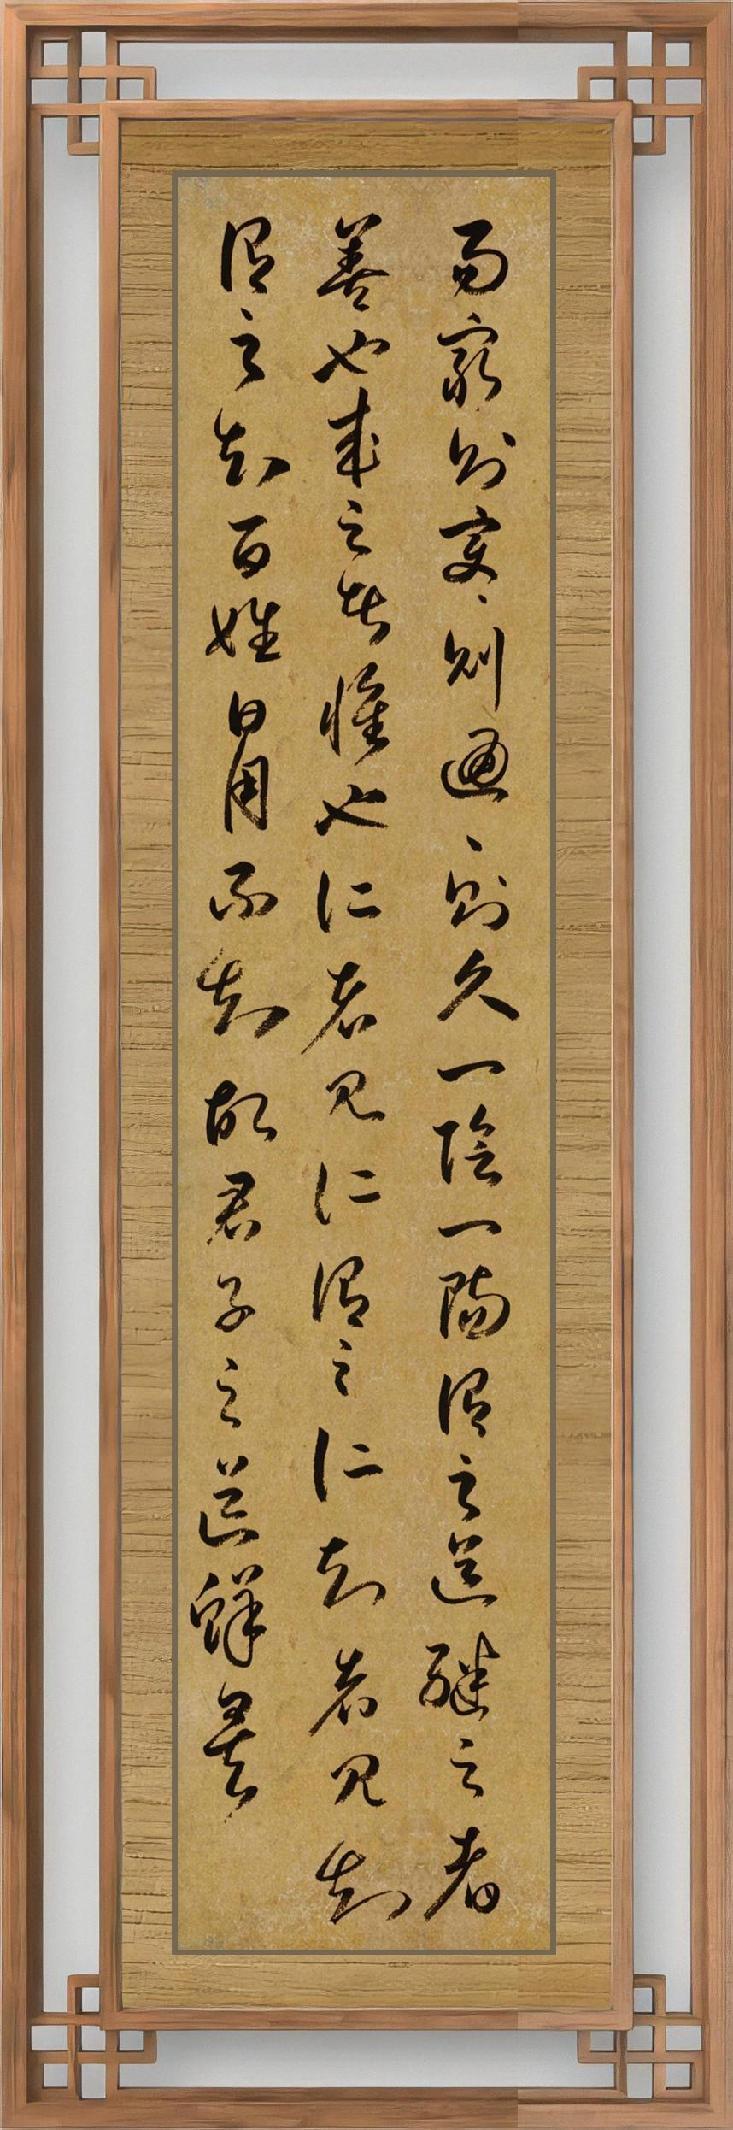 易窮則變々則通々則久一陰一陽謂之道繼之者
善也成之者性也仁者見仁謂之仁知者見知
謂之知百姓日用而不知故君子之道鮮矣